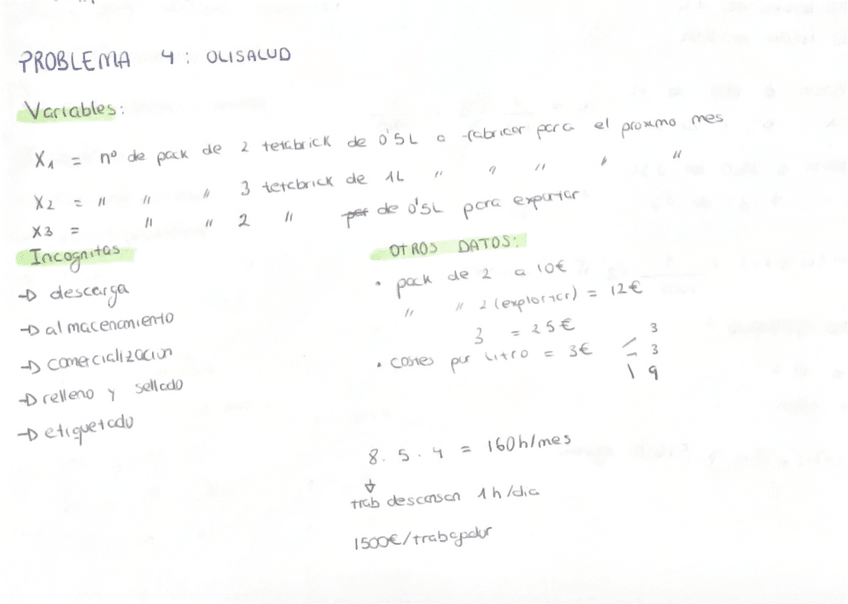 PROBLEMA 4: OLISALUD
Variables:
X1 = nº de pack de 2 tetabrick de 0'5L a fabricar para el proximo mes
X2 = " " " 3 tetabrick de 1L " " " " "
X3 = " " 2 " de 0'5L para exportar
Incognitas
→ descarga
→ almacenamiento
→ comercializacion
→ relleno y sellado
→ etiquetado
OTROS DATOS:
• pack de 2 a 10€
" " 2 (exportar) = 12€
3 = 25€
• costes por litro = 3€
3
3
9
8. 5. 4 = 160h/mes
trab descansan 1h/dia
1500€/trabajador